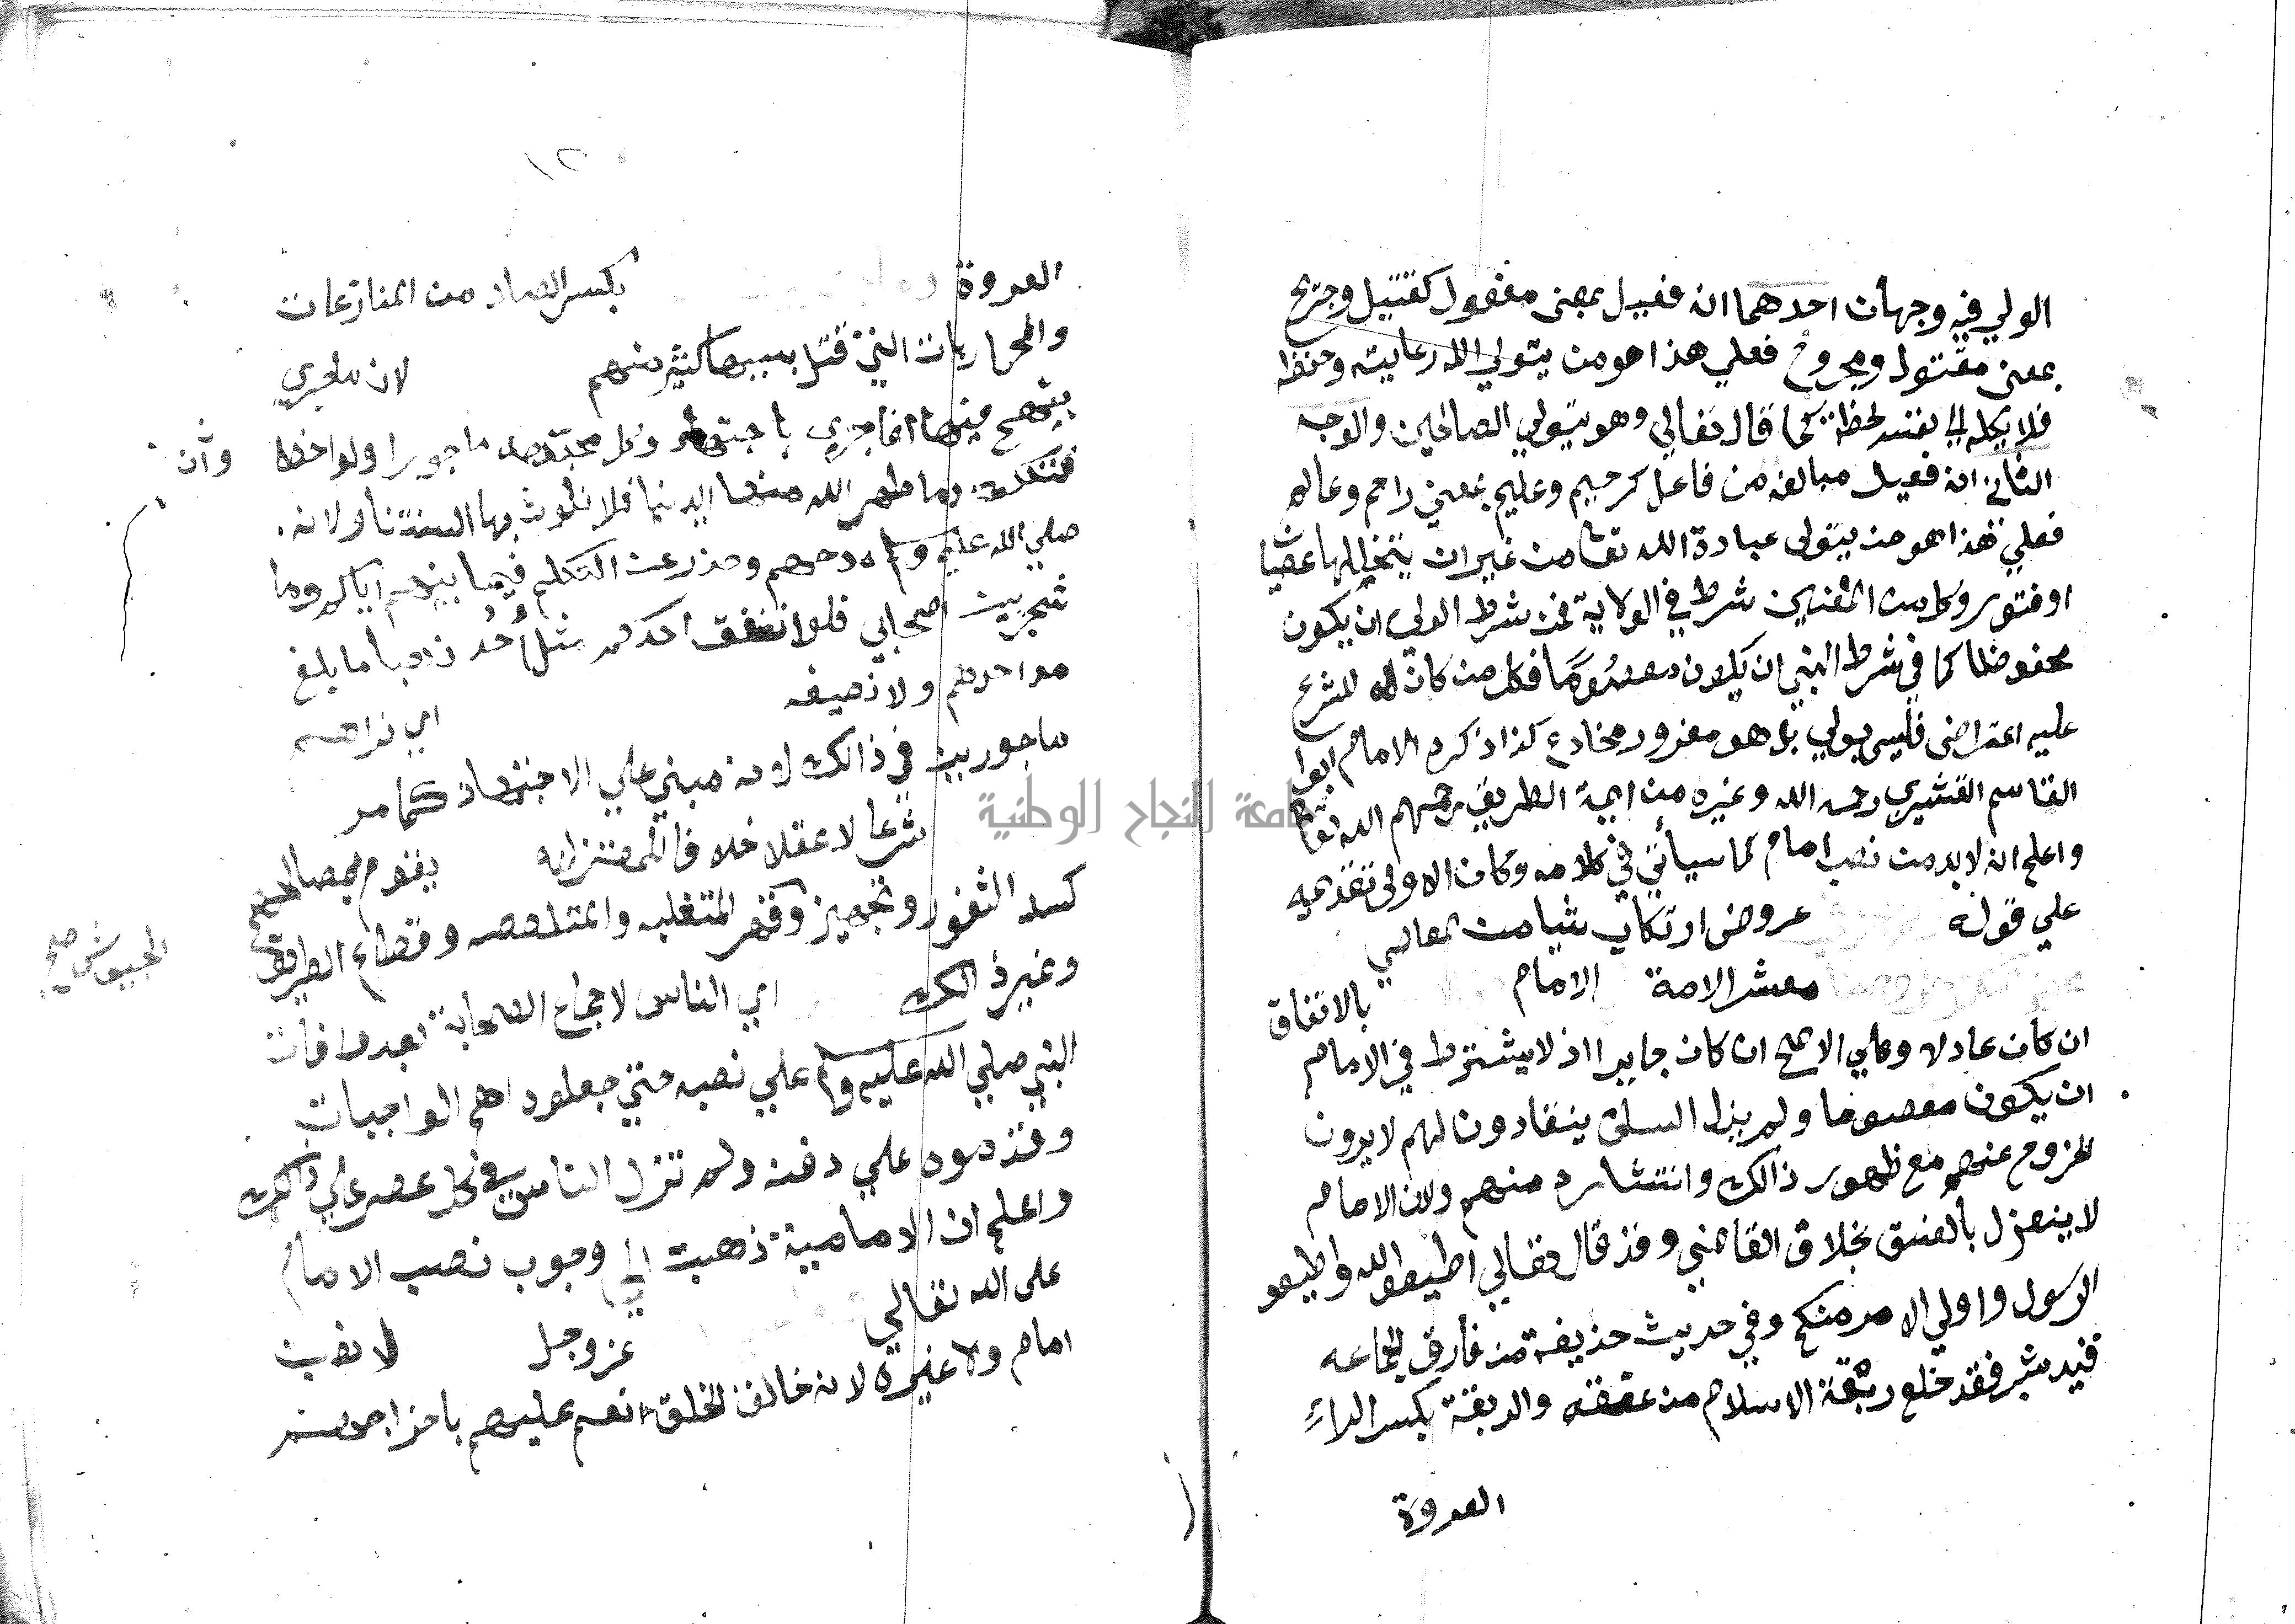 الولي فيه وجهان احدهما انه فعيل بمعنى مفعول كقتيل وجريح
بمعنى مقتول ومجروح فعلي هذا هو من يتولي الله رعايته وحفظه
فلا يكله الي نفسه لحظة كما قال تعالي وهو يتولي الصالحين والوجه
الثاني انه فعيل مبالغة من فاعل كرحيم وعليم بمعني راحم وعالم
فعلي هذا هو من يتولى عبادة الله تعا من غير ان يتخللها عصيان
او فتور وكل من المعنيين شرط في الولاية فمن شرط الولي ان يكون
محفوظا كما في شرط النبي ان يكون معصوما فكل من كان للشرع
عليه اعتراض فليس بولي بل هو مغرور مخادع كذا ذكره الامام ابوا
القاسم القشيري رحمه الله وغيره من ايمة الطريق رحمهم الله تعا
واعلم انه لا بد من نصب امام كما سيأتي في كلامه وكان الاولى تقديمه
علي قوله عروض ارتكاب شيا من المعاصي
معشر الامة الامام بالاتفاق
ان كان عادلا وعلي الاصح ان كان جايرا اذ لا يشترط في الامام
ان يكون معصوما ولم يزل السلف ينقادون لهم لا يرون
الخروج عنهم مع ظهور ذالك وانتشاره منهم ولان الامام
لا ينعزل بالفسق بخلاف القاضي وقد قال تعالي اطيعوا الله واطيعو
الرسول واولي الامر منكم وفي حديث حذيفة من فارق الجماعه
قيد شبر فقد خلع ربقة الاسلام من عنقه والربقة بكسر الراء
العروة
١٢
العروة بكسر الصاد من المنازعات
والمحاربات التي قتل بسببها كثير منهم لان ماجري
بينهم منها انما جري باجتهاد وكل مجتهد ماجورا ولو اخطا وان
فتلك دما طهر الله منها ايدينا فلا نلوث بها السنتنا ولانه
صلي الله عليه وسلم مدحهم وحذر عن التكلم فيما بينهم اياكم وما
شجر بين اصحابي فلو انفق احدكم مثل أُحُد ذهبا ما بلغ
مد احدهم ولا نصيفه اي نراهم
ماجورين في ذالك لانه مبني علي الاجتهاد كما مر
شرعا لا عقلا خلافا للمعتزله يقوم بمصالحهم
كسد الثغور وتجهيز وقهر المتغلبه والمتلصصه وقطاع الطريق
الجيوش صح
وغير ذالك اي الناس لاجماع الصحابة بعد وفات
النبي صلي الله عليه وسلم علي نصبه حتي جعلوه اهم الواجبات
وقدموه علي دفنه ولم تزل الناس في كل عصر علي ذالك
واعلم ان الامامية ذهبت الي وجوب نصب الامام
على الله تعالي عز وجل لا نصب
امام ولا غيره لانه خالق الخلق انعم عليهم باخراجهم